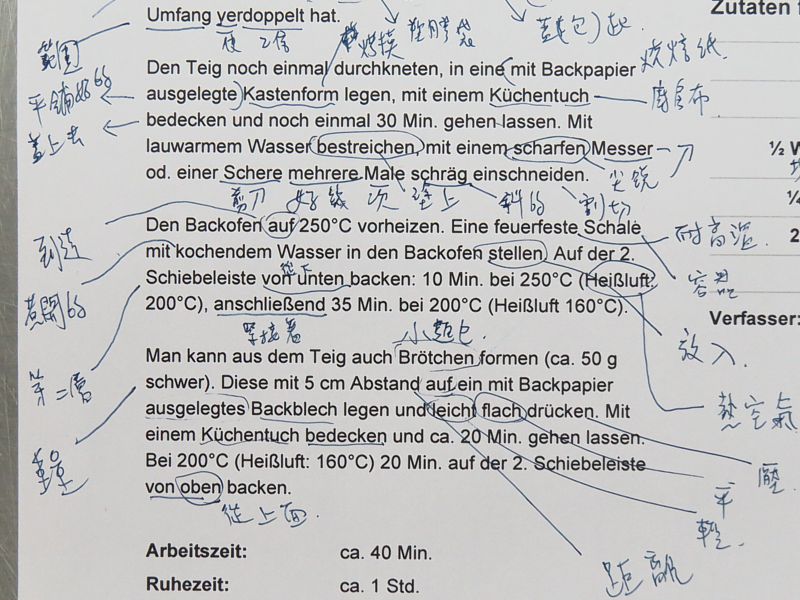 Umfang verdoppelt hat.
Zutaten f
範圍
Den Teig noch einmal durchkneten, in eine mit Backpapier
ausgelegte Kastenform legen, mit einem Küchentuch
bedecken und noch einmal 30 Min. gehen lassen. Mit
lauwarmem Wasser bestreichen, mit einem scharfen Messer
od. einer Schere mehrere Male schräg einschneiden.
½ W
剪刀 好幾次 塗上 斜的 割切
尖銳
蓋上去
Den Backofen auf 250°C vorheizen. Eine feuerfeste Schale
mit kochendem Wasser in den Backofen stellen. Auf der 2.
Schiebeleiste von unten backen: 10 Min. bei 250°C (Heißluft:
200°C), anschließend 35 Min. bei 200°C (Heißluft 160°C).
到達
耐高溫.
2
煮開的
容器
Verfasser:
緊接着
小麵包
放入.
Man kann aus dem Teig auch Brötchen formen (ca. 50 g
schwer). Diese mit 5 cm Abstand auf ein mit Backpapier
ausgelegtes Backblech legen und leicht flach drücken. Mit
einem Küchentuch bedecken und ca. 20 Min. gehen lassen.
Bei 200°C (Heißluft: 160°C) 20 Min. auf der 2. Schiebeleiste
von oben backen.
第二層
熱空氣
重量
壓.
平
輕.
從上面.
距離
Arbeitszeit: ca. 40 Min.
Ruhezeit: ca. 1 Std.